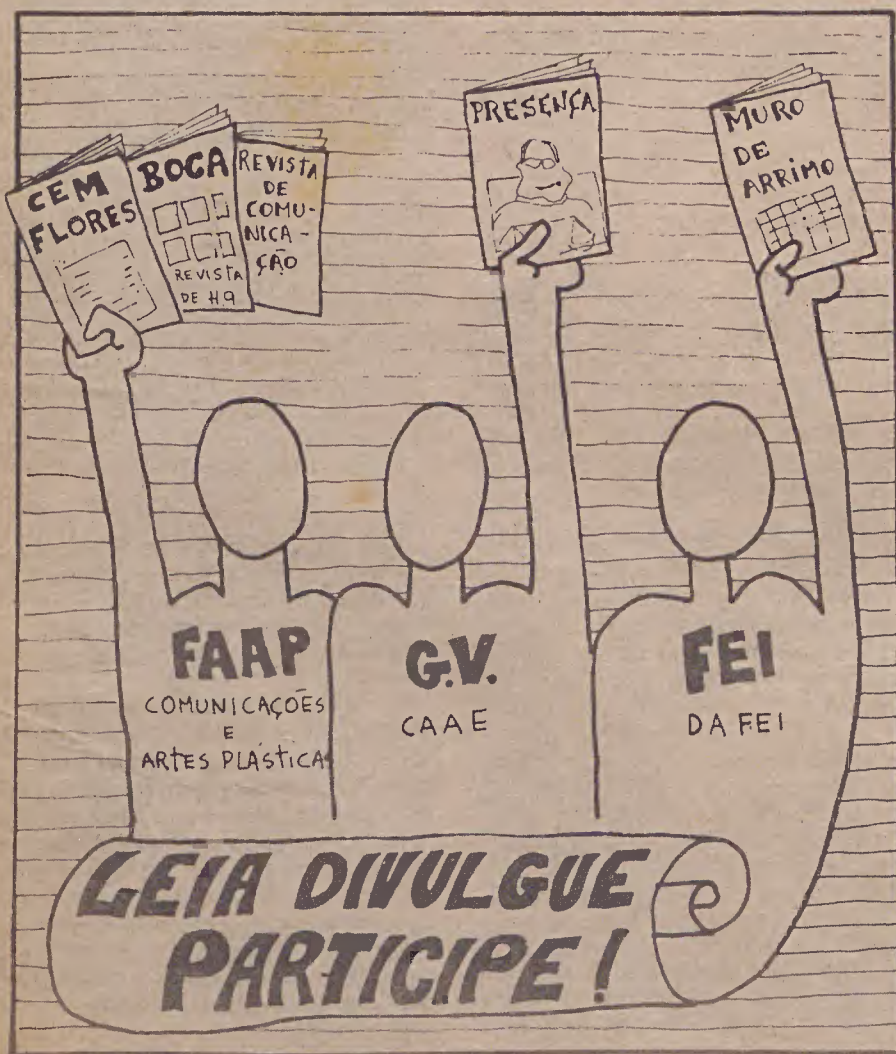 CEM
FLORES
BOCA
REVISTA
DE HQ
REVISTA
DE
COMU-
NICA-
ÇÃO
PRESENÇA
MURO
DE
ARRIMO
FAAP
COMUNICAÇÕES
E
ARTES PLÁSTICAS
G.V.
CAAE
FEI
DA FEI
LEIA DIVULGUE
PARTICIPE!